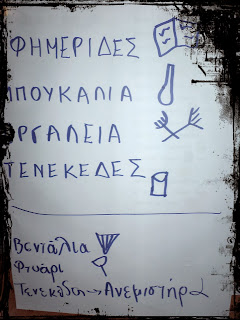 ΦΗΜΕΡΙΔΕΣ
ΠΟΥΚΑΛΙΑ
ΡΓΑΛΕΙΑ
ΤΕΝΕΚΕΔΕΣ
Βεντάλια
Φτυάρι
→ Ανεμιστήρα